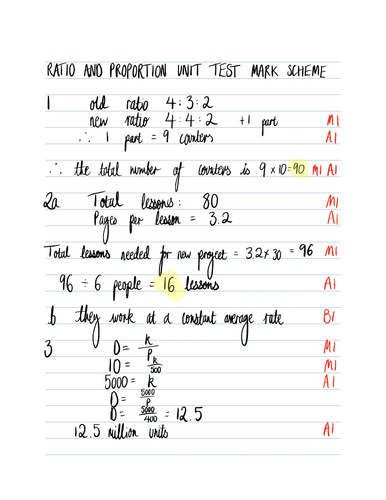 RATIO AND PROPORTION UNIT TEST MARK SCHEME
1 old ratio 4:3:2
new ratio 4:4:2 +1 part M1
∴ 1 part = 9 counters A1
∴ the total number of counters is 9 × 10 = 90 M1 A1
2a Total lessons: 80 M1
Pages per lesson = 3.2 A1
Total lessons needed for new project = 3.2 × 30 = 96 M1
96 ÷ 6 people = 16 lessons A1
b they work at a constant average rate B1
3 D = k/P M1
10 = k/500 M1
5000 = k A1
D = 5000/P
D = 5000/400 = 12.5
12.5 million units A1